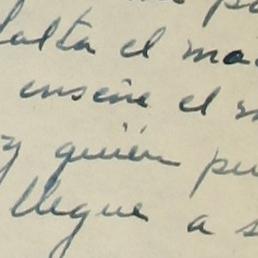 falta el ma
enseñe el m
y quién pu
llegue a s